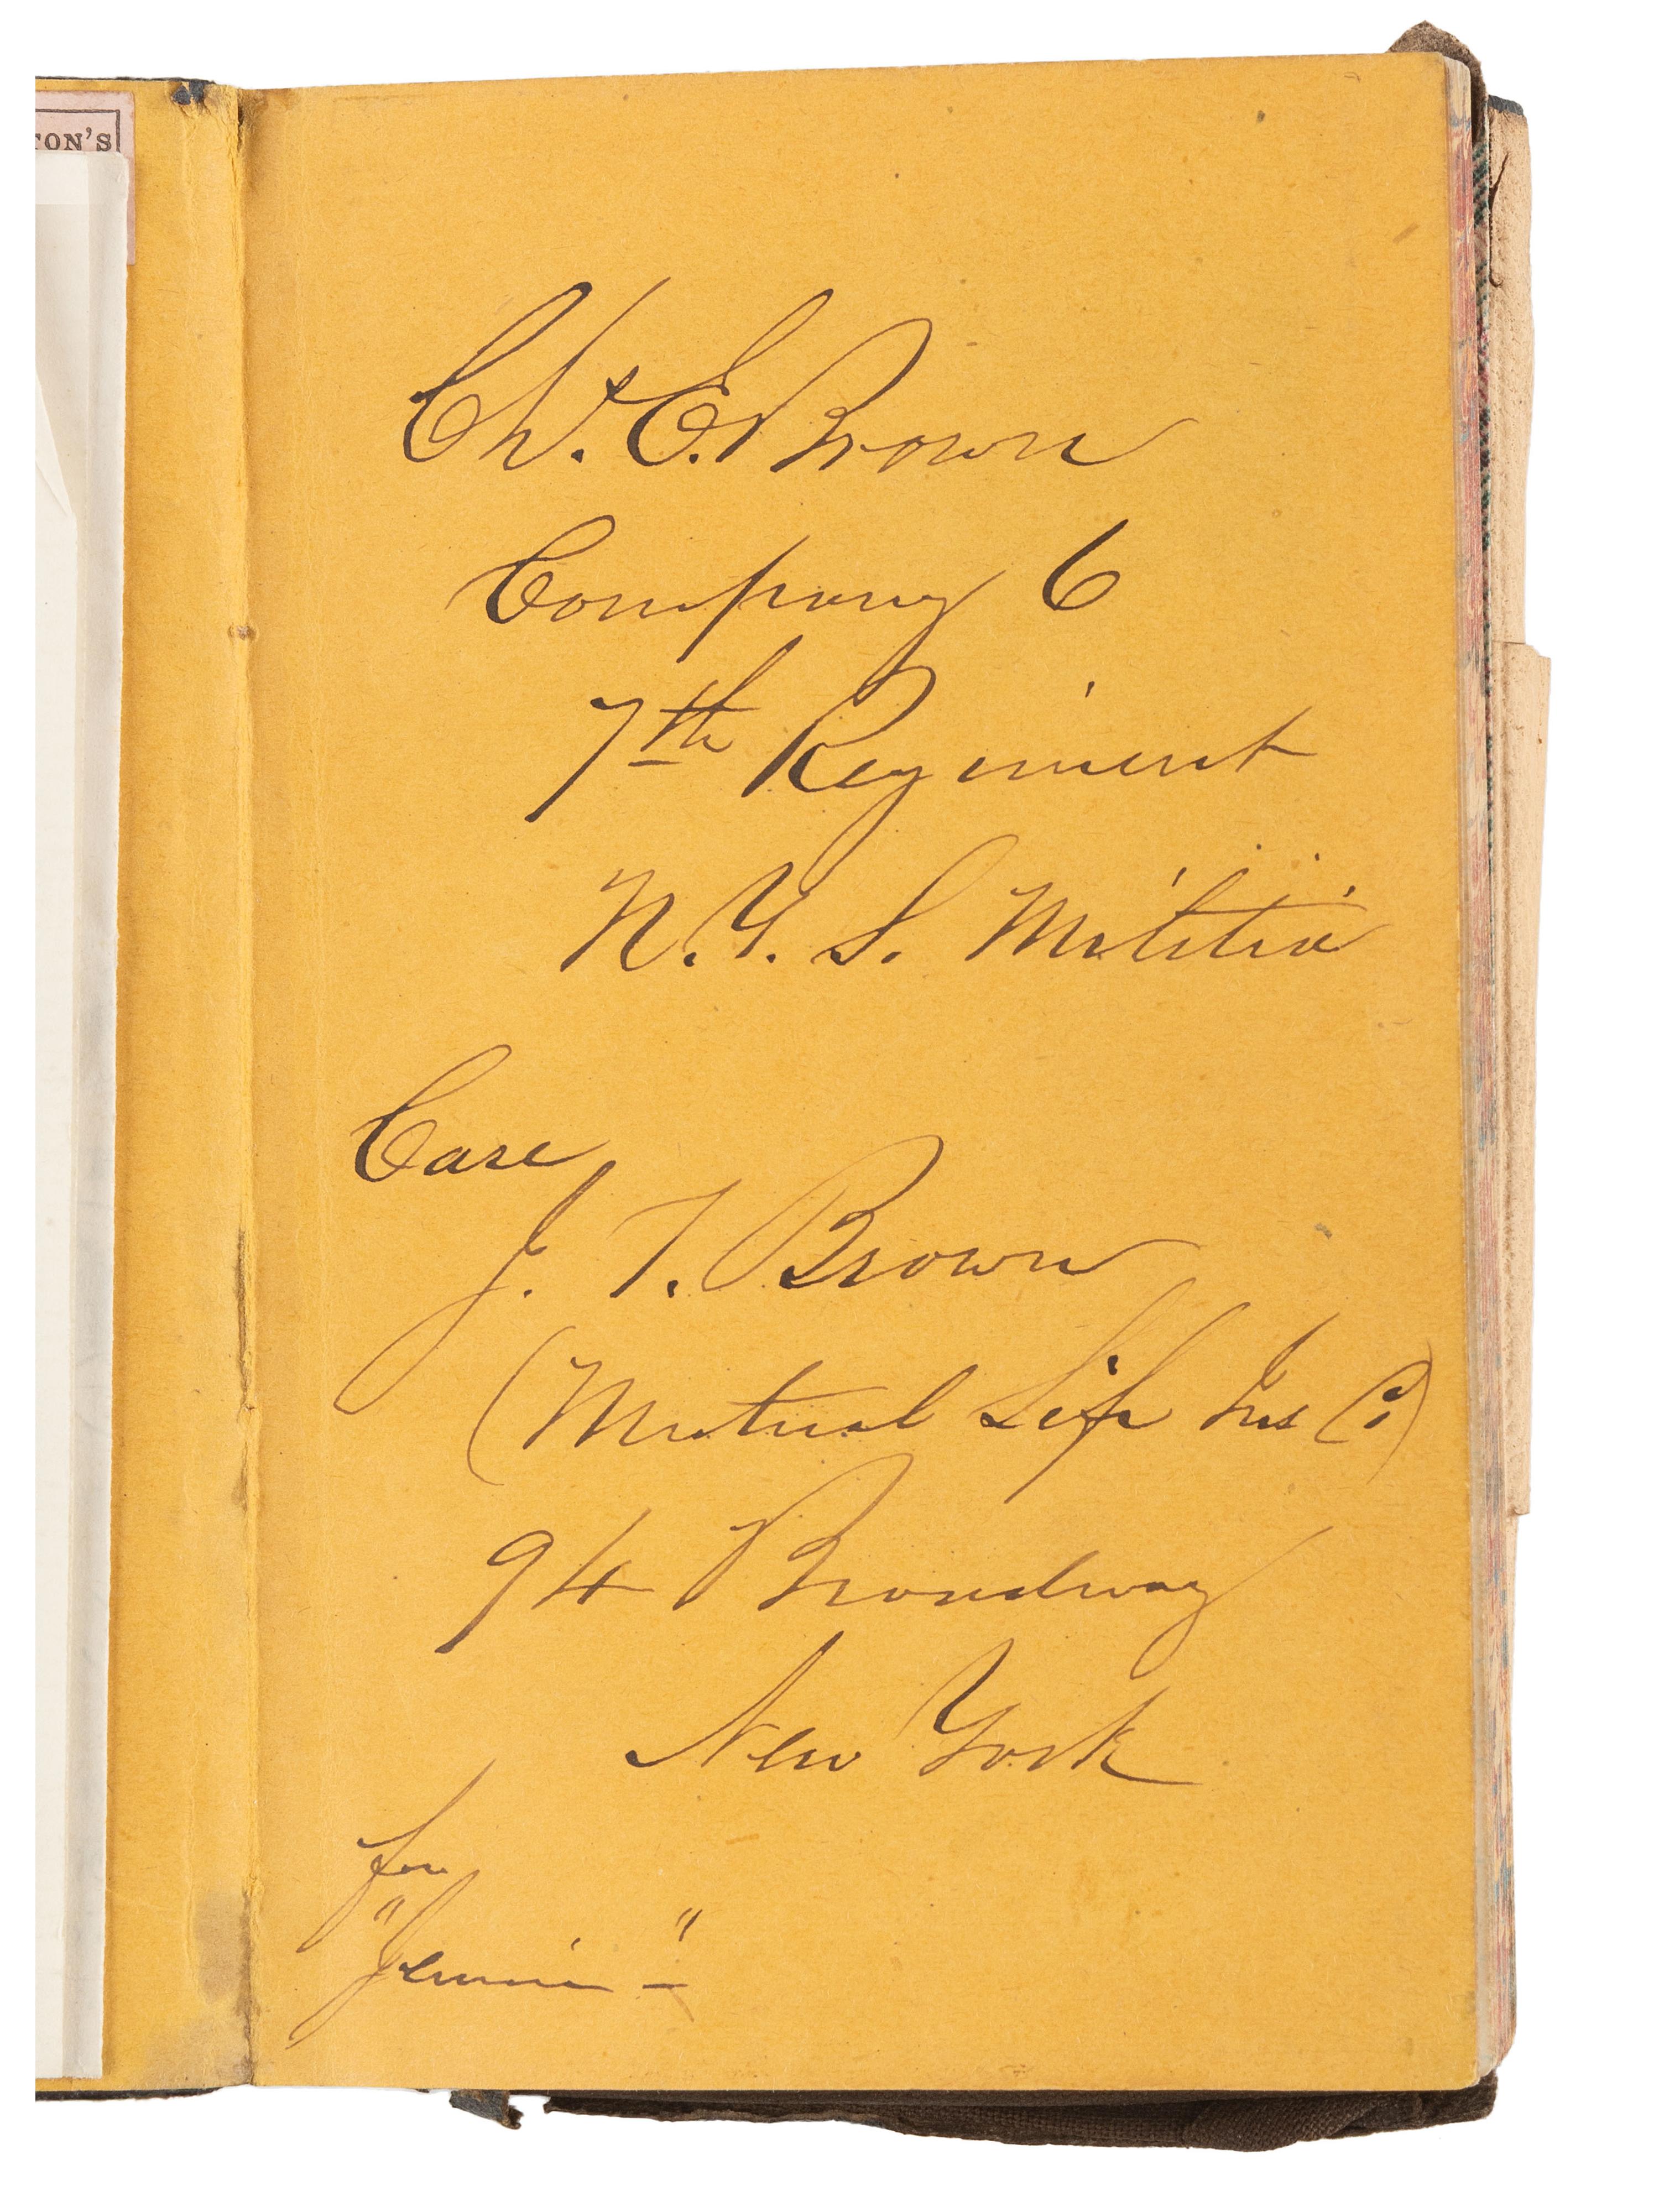 TON'S
Chs. E. Brown
Company 6
7th Regiment
N.Y.S. Militia
Care
J. T. Brown
(Mutual Life Ins Co)
94 Broadway
New York
for
"Jennie"-